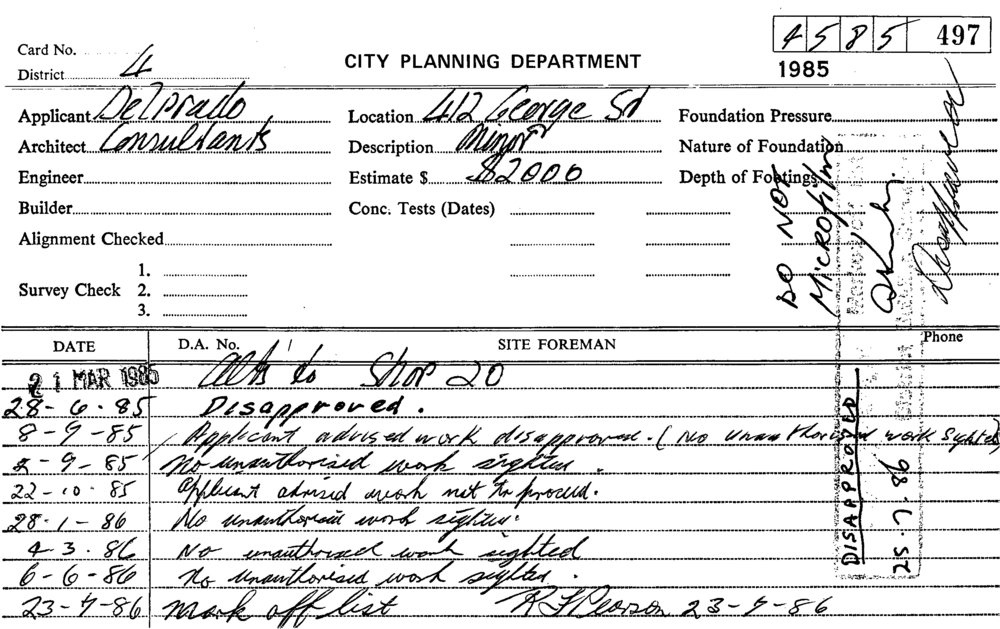 4 5 8 5 497
Card No.
District 4
CITY PLANNING DEPARTMENT
1985
Applicant Del Prado
Location 412 George St
Foundation Pressure
Architect Consultants
Description Minor
Nature of Foundation
Engineer
Estimate $ $2000
Depth of Footings
Builder
Conc. Tests (Dates)
Alignment Checked
1.
Survey Check 2.
3.
DO NOT
MICROFILM
Disapproved
DATE
D.A. No. /
SITE FOREMAN
Phone
21 MAR 1985 Alts to Shop 20
28-6-85 Disapproved.
8-9-85 Applicant advised work disapproved. (No unauthorised work sighted)
2-9-85 No unauthorised work sighted.
22-10-85 Applicant advised work not to proceed.
28-1-86 No unauthorised work sighted.
4-3-86 No unauthorised work sighted
6-6-86 No unauthorised work sighted.
23-7-86 Mark off list R F Pearson 23-7-86
DISAPPROVED
25.7.86